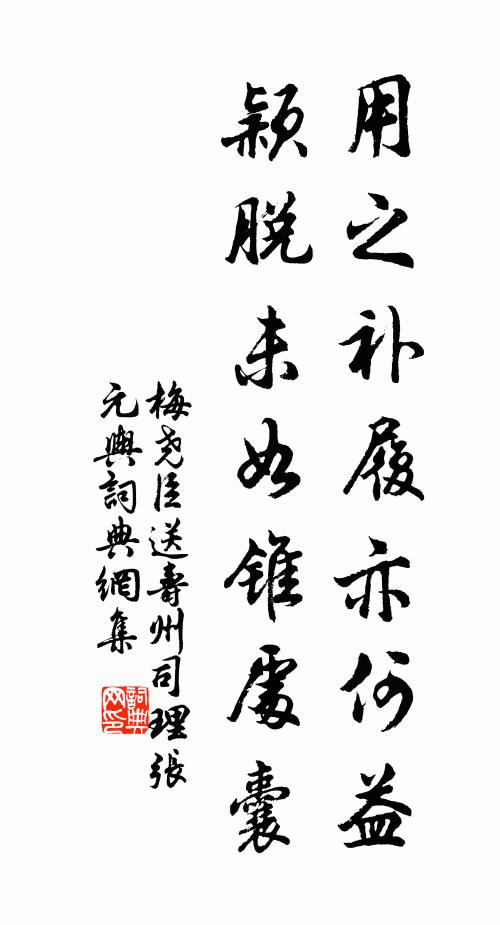 用之补履亦何益
颖脱未如锥處囊
梅尧臣送壽州司理張
元輿詞典網集
詞典
网印